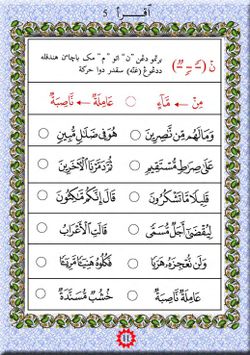 اقرأ 5
برتمو دڠن "ن" اتو "م" مک باچاءن هندقله
ددڠوڠ (غنه) سقدر دوا حركة
مِنْ ← مَآءٍ عَامِلَةٌ ← نَاصِبَةٌ
وَمَالَهُمْ مِّن نَّٰصِرِينَ ○ هُوَ فِى ضَلَٰلٍ مُّبِينٍ ○
عَلَىٰ صِرَٰطٍ مُّسْتَقِيمٍ ○ ثُمَّ دَمَّرْنَا ٱلْأٓخَرِينَ ○
قَلِيلًا مَّا تَشْكُرُونَ ○ قَالَ إِنَّكُم مَّٰكِثُونَ ○
لِيُقْضَىٰٓ أَجَلٌ مُّسَمًّى ○ قَالَتِ ٱلْأَعْرَابُ ○
وَلَن نُّعْجِزَهُۥ هَرَبًا ○ فَكُلُوهُ هَنِيٓـًٔا مَّرِيٓـًٔا ○
عَامِلَةٌ نَّاصِبَةٌ ○ خُشُبٌ مُّسَنَّدَةٌ ○